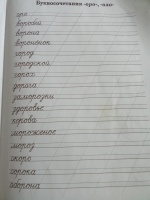 Буквосочетания -оро-, -оло-
воробей
ворона
воронёнок
город
городской
горох
дорога
заморозки
здоровье
корова
мороженое
мороз
скоро
сорока
оборона